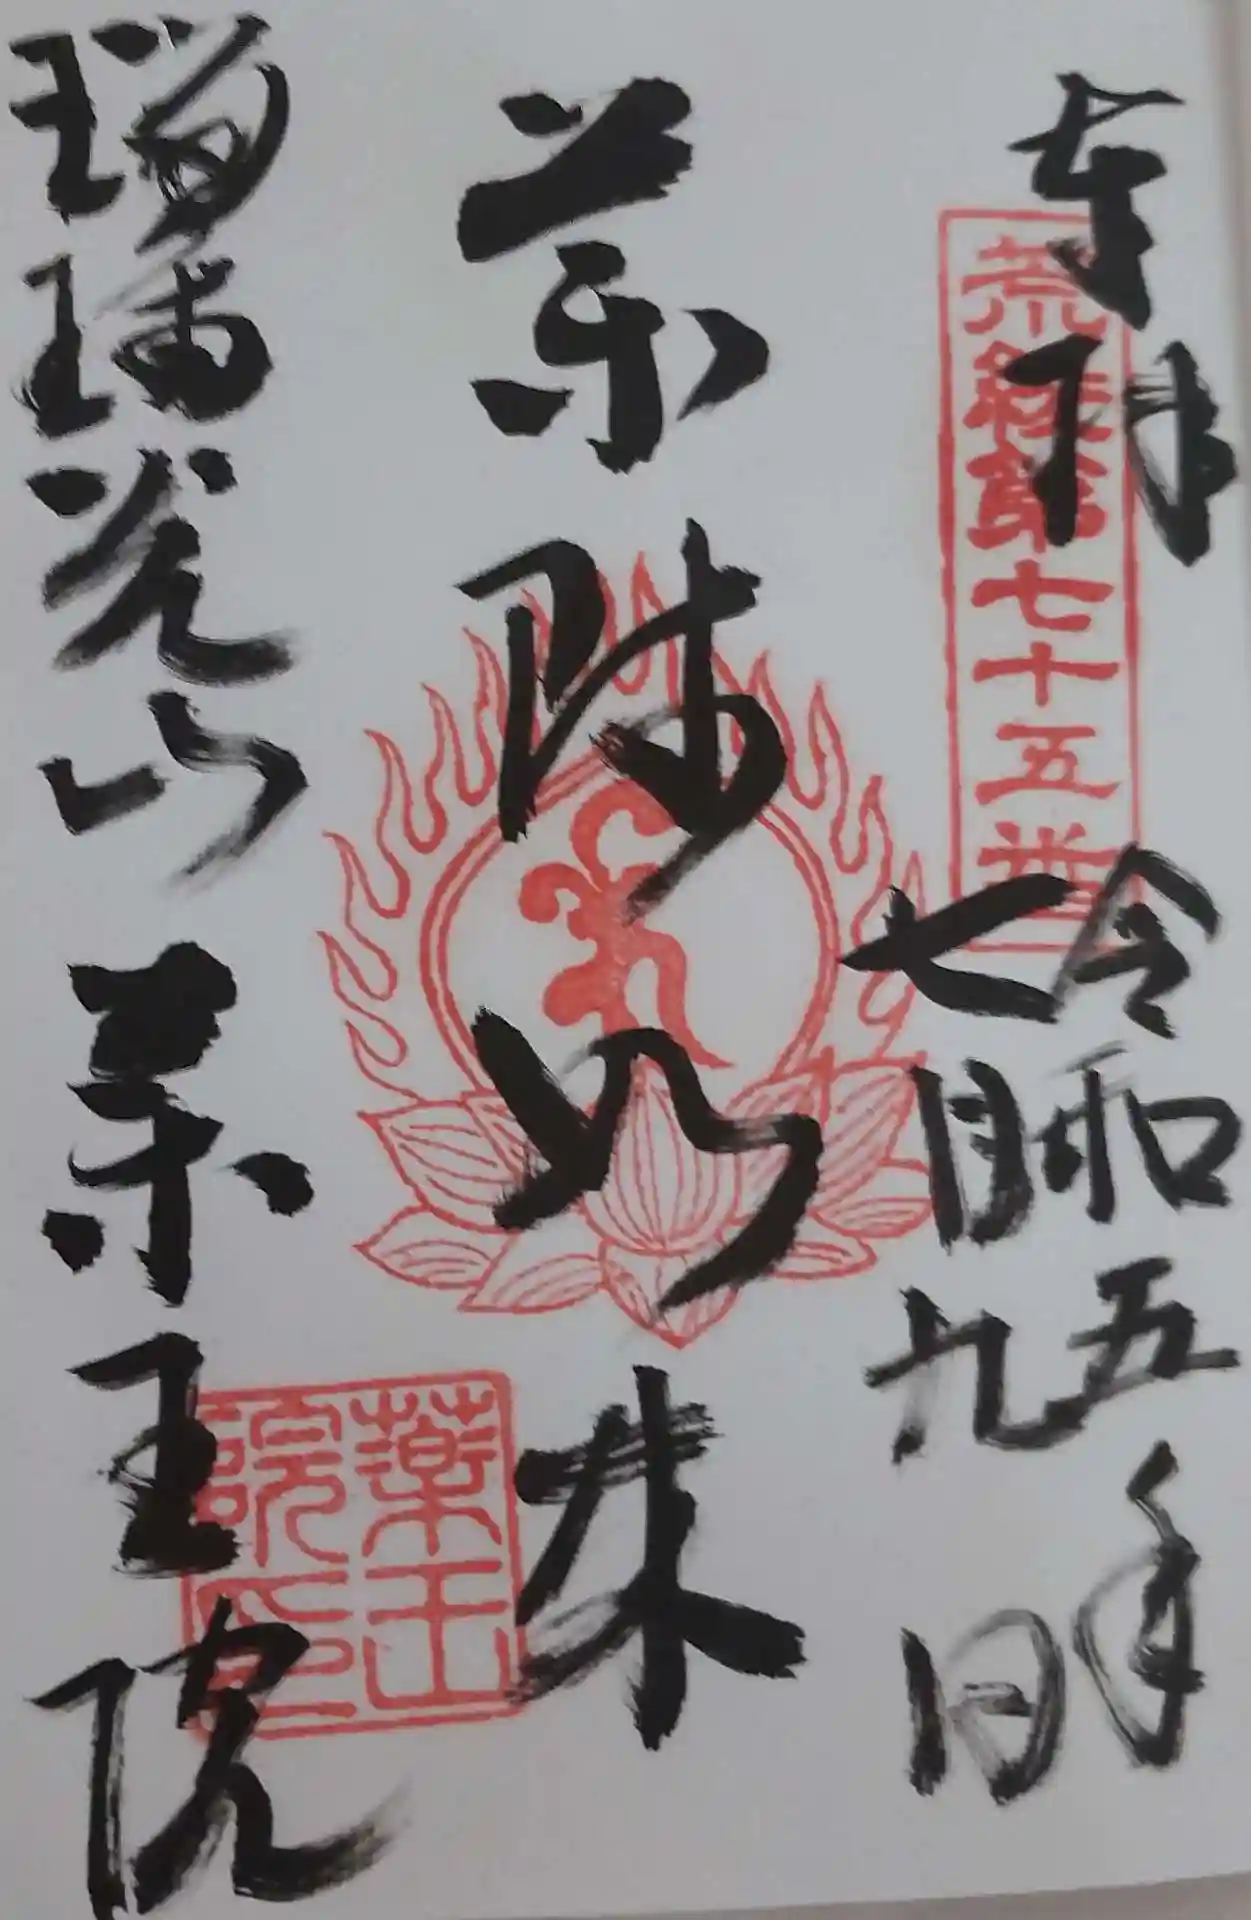 奉拝
荒綾第七十五番
令和五年
七月九日
薬師如来
瑠璃光山 薬王院
薬王
院印